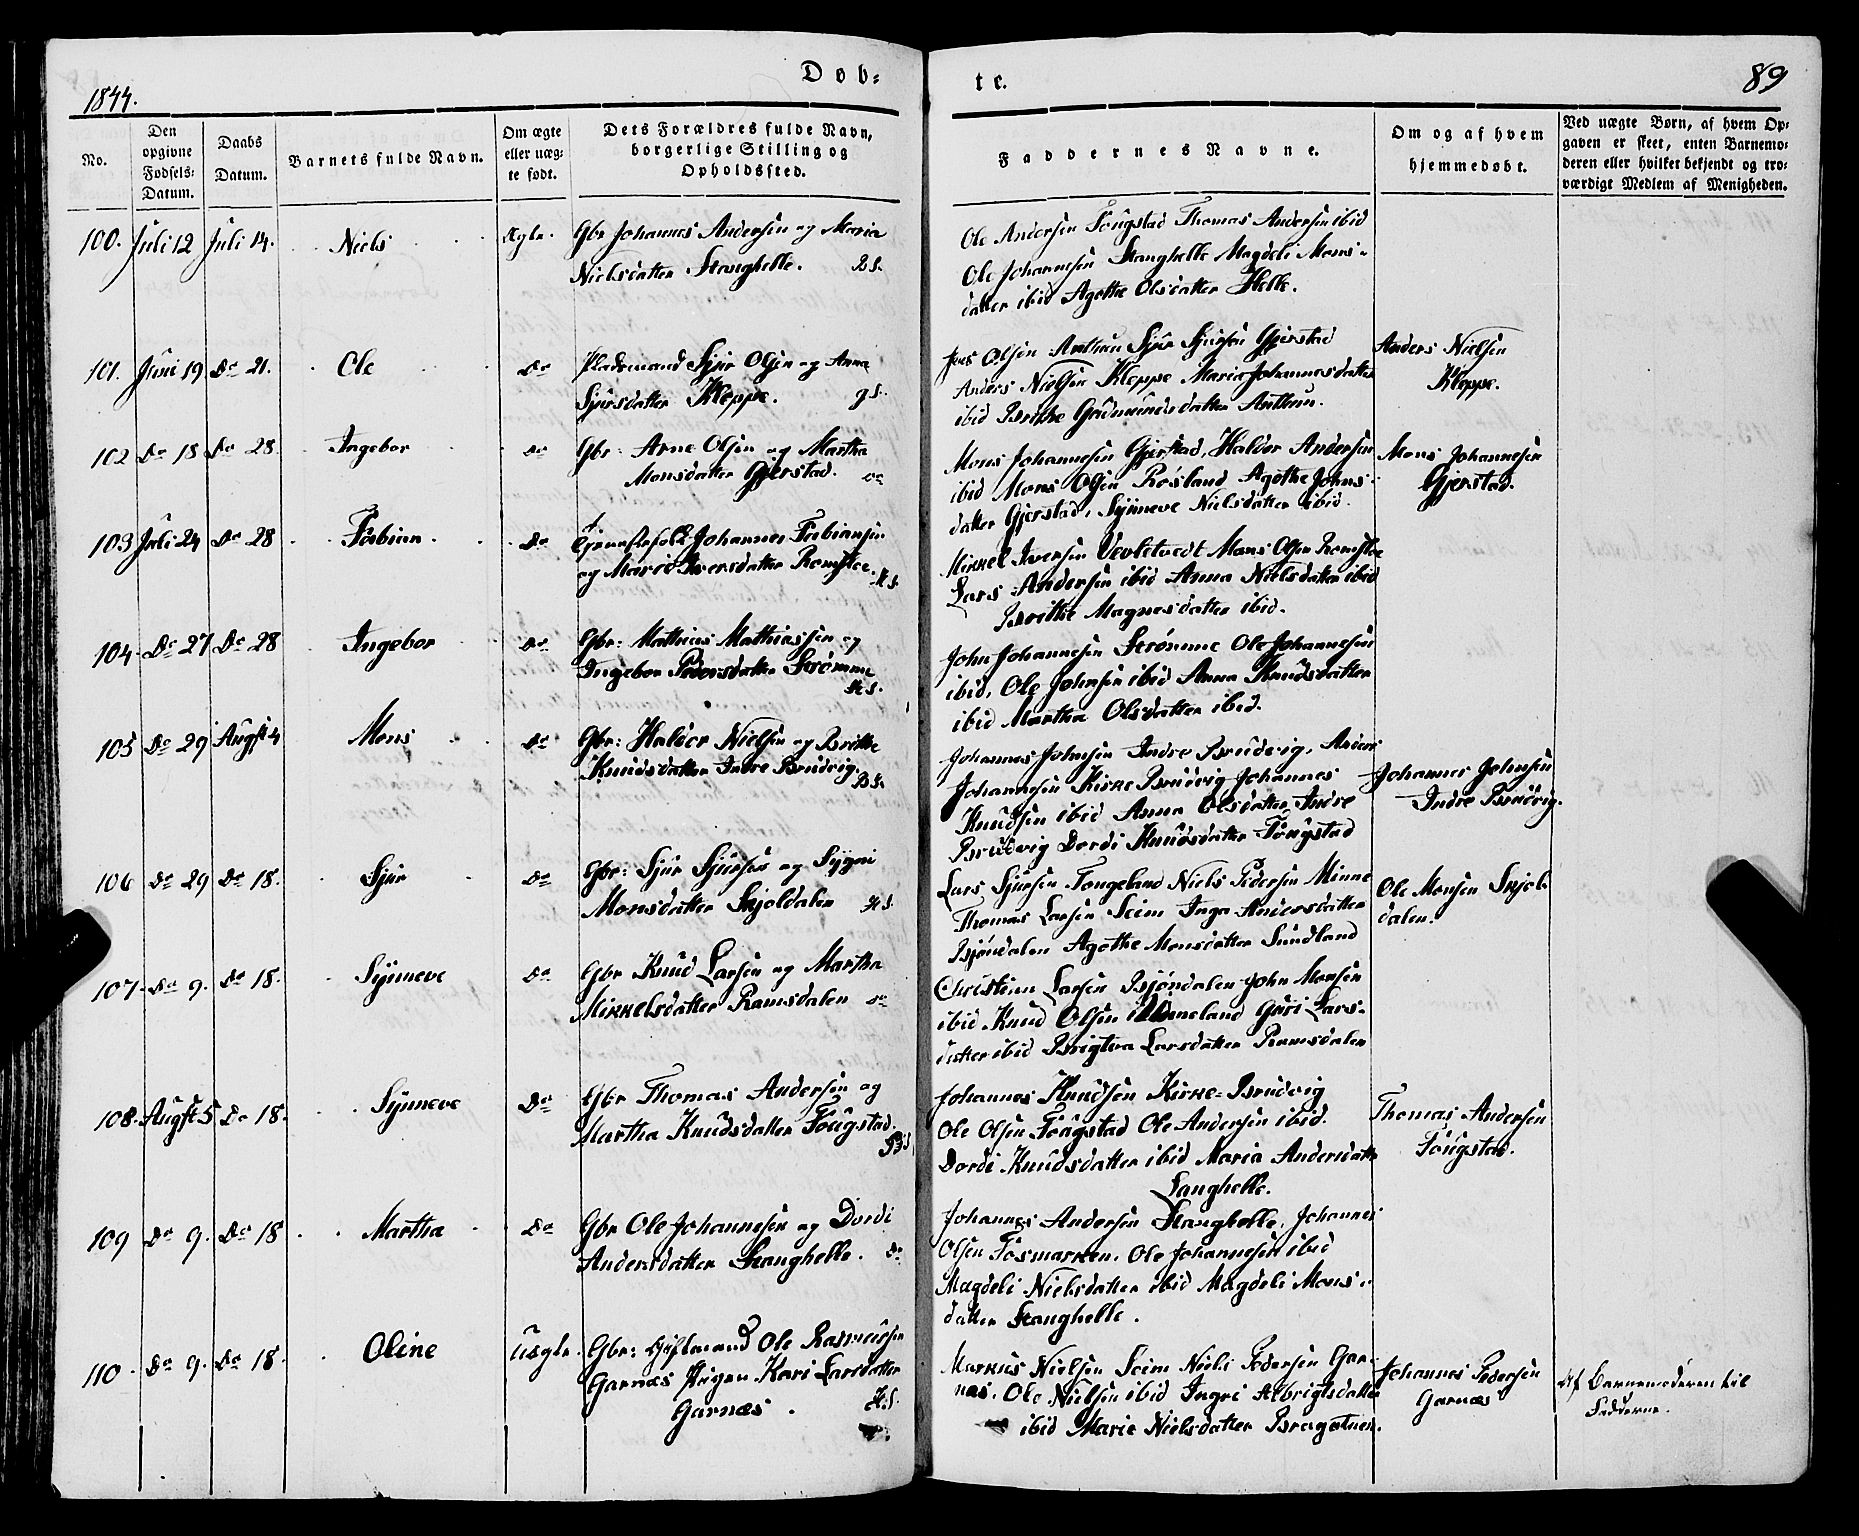 1844.
Døb-
te.
89
No.
Den opgivne Fødsels-Datum.
Daabs Datum.
Barnets fulde Navn.
Om ægte eller uægte født.
Dets Forældres fulde Navn, borgerlige Stilling og Opholdssted.
Faddernes Navne.
Om og af hvem hjemmedøbt.
Ved uægte Børn, af hvem Opgaven er skeet, enten Barnemoderen eller hvilket bekjendt og troværdigt Medlem af Menigheden.
100. Juli 12 Juli 14. Niels Ægte. Gbr Johannes Andersen og Maria
Nielsdatter Stanghelle. B S.
Ole Andersen Fougstad Thomas Andersen ibid
Ole Johannesen Stanghelle Magdeli Mons-
datter ibid Agathe Olsdatter Helle.
101. Juni 19 Do 21. Ole Do Pladsmand Sjur Olsen og Anna
Sjursdatter Kleppe. g S.
Olsen Antun Sjur Sjursen Gjerstad
Anders Nielsen Kleppe Maria Johannesdatter
ibid Brithe Gudmundsdatter Antun.
Anders Nielsen
Kleppe.
102 Do 18 Do 28. Ingebor Do Gbr: Arne Olsen og Martha
Monsdatter Gjerstad. Do
Mons Johannesen Gjerstad, Haldor Andersen
ibid Mons Olsen Røsland Agothe Johns-
datter Gjerstad, Synneve Nielsdatter ibid.
Mons Johannesen
Gjerstad.
103 Juli 24 Do 28 Fabian Do Tjenestefolk Johannes Fabiansen
og Marie Iversdatter Romslee. H S.
Mikkel Iversen Vevletvedt Mons Olsen Romslee
Lars Andersen ibid Anna Nielsdatter ibid
Brithe Magnesdatter ibid.
104 Do 27 Do 28 Ingebor Do Gbr: Mathias Mathiassen og
Ingebor Pedersdatter Strømme
H S.
John Johannesen Strømme Ole Johannesen
ibid, Ole Johnsen ibid Anna Knudsdatter
ibid Martha Olsdatter ibid.
105 Do 29 Augst 4 Mons Do Gbr: Haldor Nielsen og Brithe
Knudsdatter Indre Brudvig. B S.
Johannes Johnsen Indre Brudvig, Anders
Johannesen Kirke Brudvig Johannes
Knudsen ibid Anna Olsdatter Indre
Brudvig Dordi Knudsdatter Fougstad
Johannes Johnsen
Indre Brudvig.
106 Do 29 Do 18. Sjur Do Gbr: Sjur Sjursen og Sygni
Monsdatter Skjoldalen H S.
Lars Sjursen Tongeland Niels Pedersen Minne
Thomas Larsen Seim Inga Andersdatter
Bjøndalen Agothe Monsdatter Sundland
Ole Monsen Skjol-
dalen.
107. Do 9. Do 18. Synneve Do Gbr Knud Larsen og Martha
Mikkelsdatter Ramsdalen Do
Christian Larsen Bjøndalen John Monsen
ibid Knud Olsen Guri Lars-
datter ibid Larsdatter Ramsdalen
108. Augst 5 Do 18. Synneve Do Gbr Thomas Andersen og
Martha Knudsdatter Fougstad. B S.
Johannes Knudsen Kirke-Brudvig
Ole Olsen Fougstad Ole Andersen ibid.
Dordi Knudsdatter ibid Maria Andersdatter
Stanghelle.
Thomas Andersen
Fougstad.
109 Do 9. Do 18 Martha Do Gbr Ole Johannesen og Dordi
Andersdatter Stanghelle. Do.
Johannes Andersen Stanghelle, Johannes
Olsen Fosmarken. Ole Johannesen ibid
Magdeli Nielsdatter ibid Magdeli Mons-
datter Stanghelle.
110 Do 9. Do 18. Oline Uægte. Gbr: Giftmand Ole Rasmussen
Garnæs Pigen Kari Larsdatter
Garnæs. H S.
Markus Nielsen Seim Niels Pedersen Gar-
næs. Ole Nielsen ibid Ingri Albrigtsdatter
ibid Marie Nielsdatter Bragatnen.
Johannes Pedersen
Garnæs
Af Barnemoderen til
Fadderne.